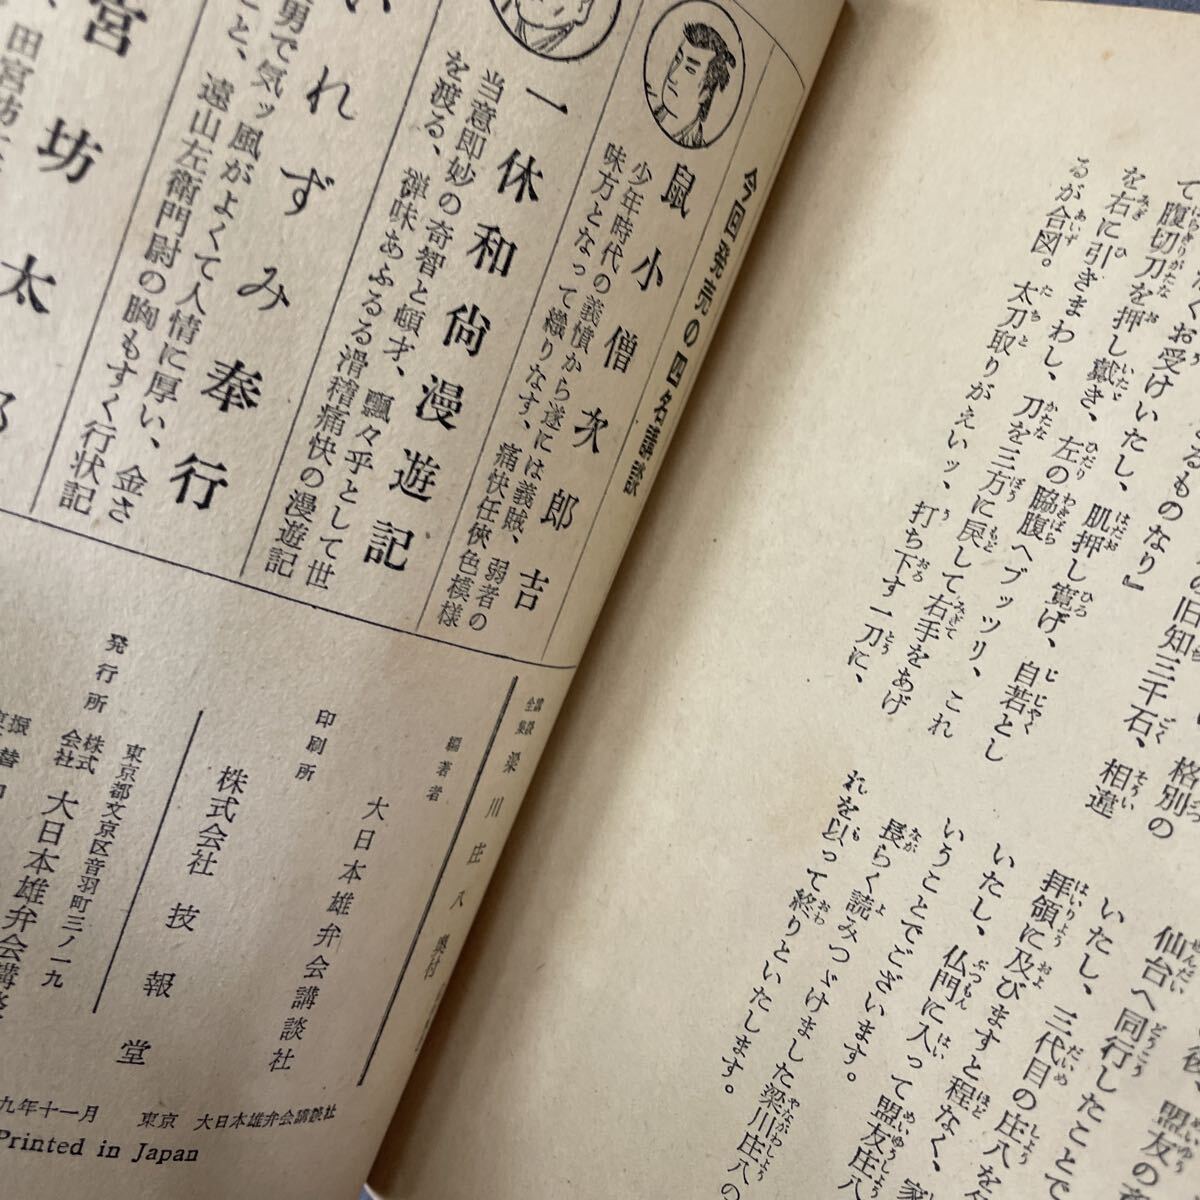 お受けいたし、
て腹切刀を押し戴き、左の脇腹へブッツリ、これ
を右に引きまわし、刀を三方に戻して右手をあげ
るが合図。太刀取りがえいッ、打ち下す一刀に、
仙台へ同行したことで
いたし、三代目の庄八を
拝領に及びますと程なく、家
いたし、仏門に入って盟友庄八
いうことでございます。
長らく読みつゞけました梁川庄八の
れを以って終りといたします。
今回発売の四名講談
鼠小僧次郎吉
少年時代の義憤から遂には義賊、弱者の
味方となって織りなす、痛快任俠色模様
一休和尚漫遊記
当意即妙の奇智と頓才、飄々乎として世
を渡る、禅味あふるる滑稽痛快の漫遊記
いれずみ奉行
男で気ッ風がよくて人情に厚い、金さ
こと、遠山左衛門尉の胸もすく行状記
宮坊太郎
講談全集 梁川庄八 奥付
編著者 大日本雄弁会講談社
印刷所 株式会社 技報堂
東京都文京区音羽町三ノ一九
発行所 株式会社 大日本雄弁会講談
振替口
九年十一月 東京 大日本雄弁会講談社
Printed in Japan